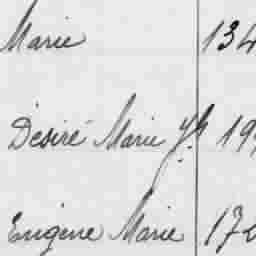 Marie 134
Désiré Marie Jh 19
Eugène Marie 17